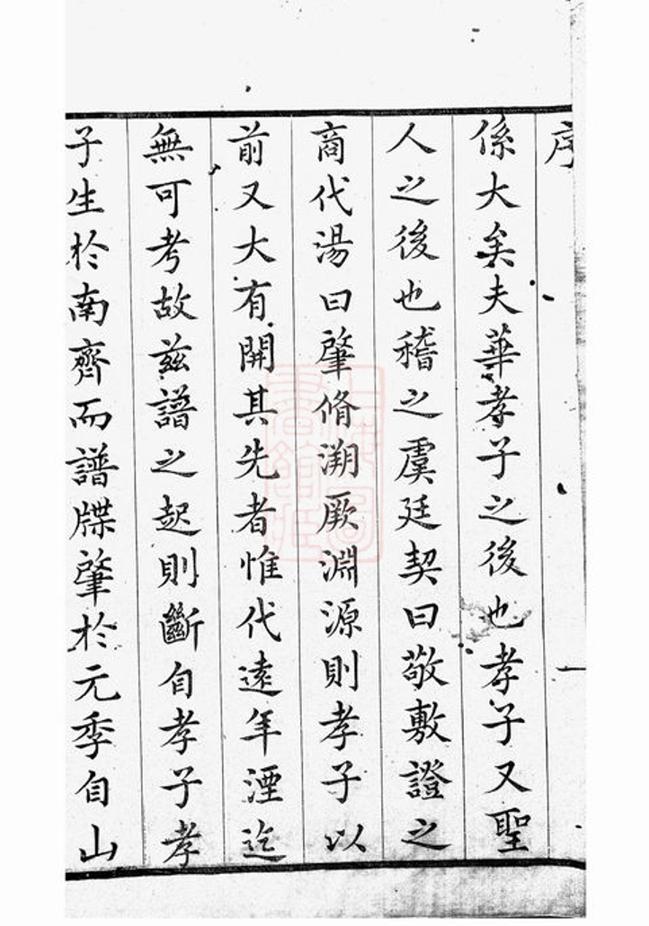 序
一
係大矣夫華孝子之後也孝子又聖
人之後也稽之虞廷契曰敬敷證之
商代湯曰肇脩溯厥淵源則孝子以
前又大有開其先者惟代遠年湮迄
無可考故茲譜之起則斷自孝子孝
子生於南齊而譜牒肇於元季自山